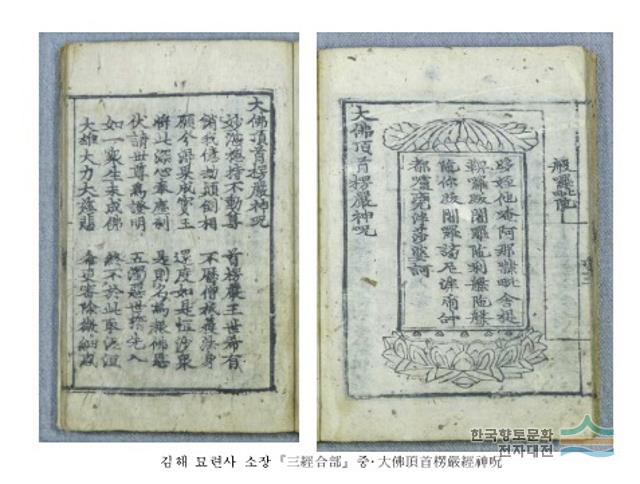 大佛頂首楞嚴神呪
妙湛總持不動尊 首楞嚴王世希有
銷我億劫顚倒相 不歷僧祇獲法身
願今得果成寶王 還度如是恒沙衆
將此深心奉塵刹 是則名爲報佛恩
伏請世尊爲證明 五濁惡世誓先入
如一衆生未成佛 終不於此取泥洹
大雄大力大慈悲 希更審除微細惑
姪他唵阿那 毗舍提
跋闍囉陀利盤陀盤
陀你跋闍囉謗尼泮
都嚧甕泮莎婆訶
大佛頂首楞嚴神呪
한국향토문화
전자대전
김해 묘련사 소장『三經合部』중·大佛頂首楞嚴經神呪